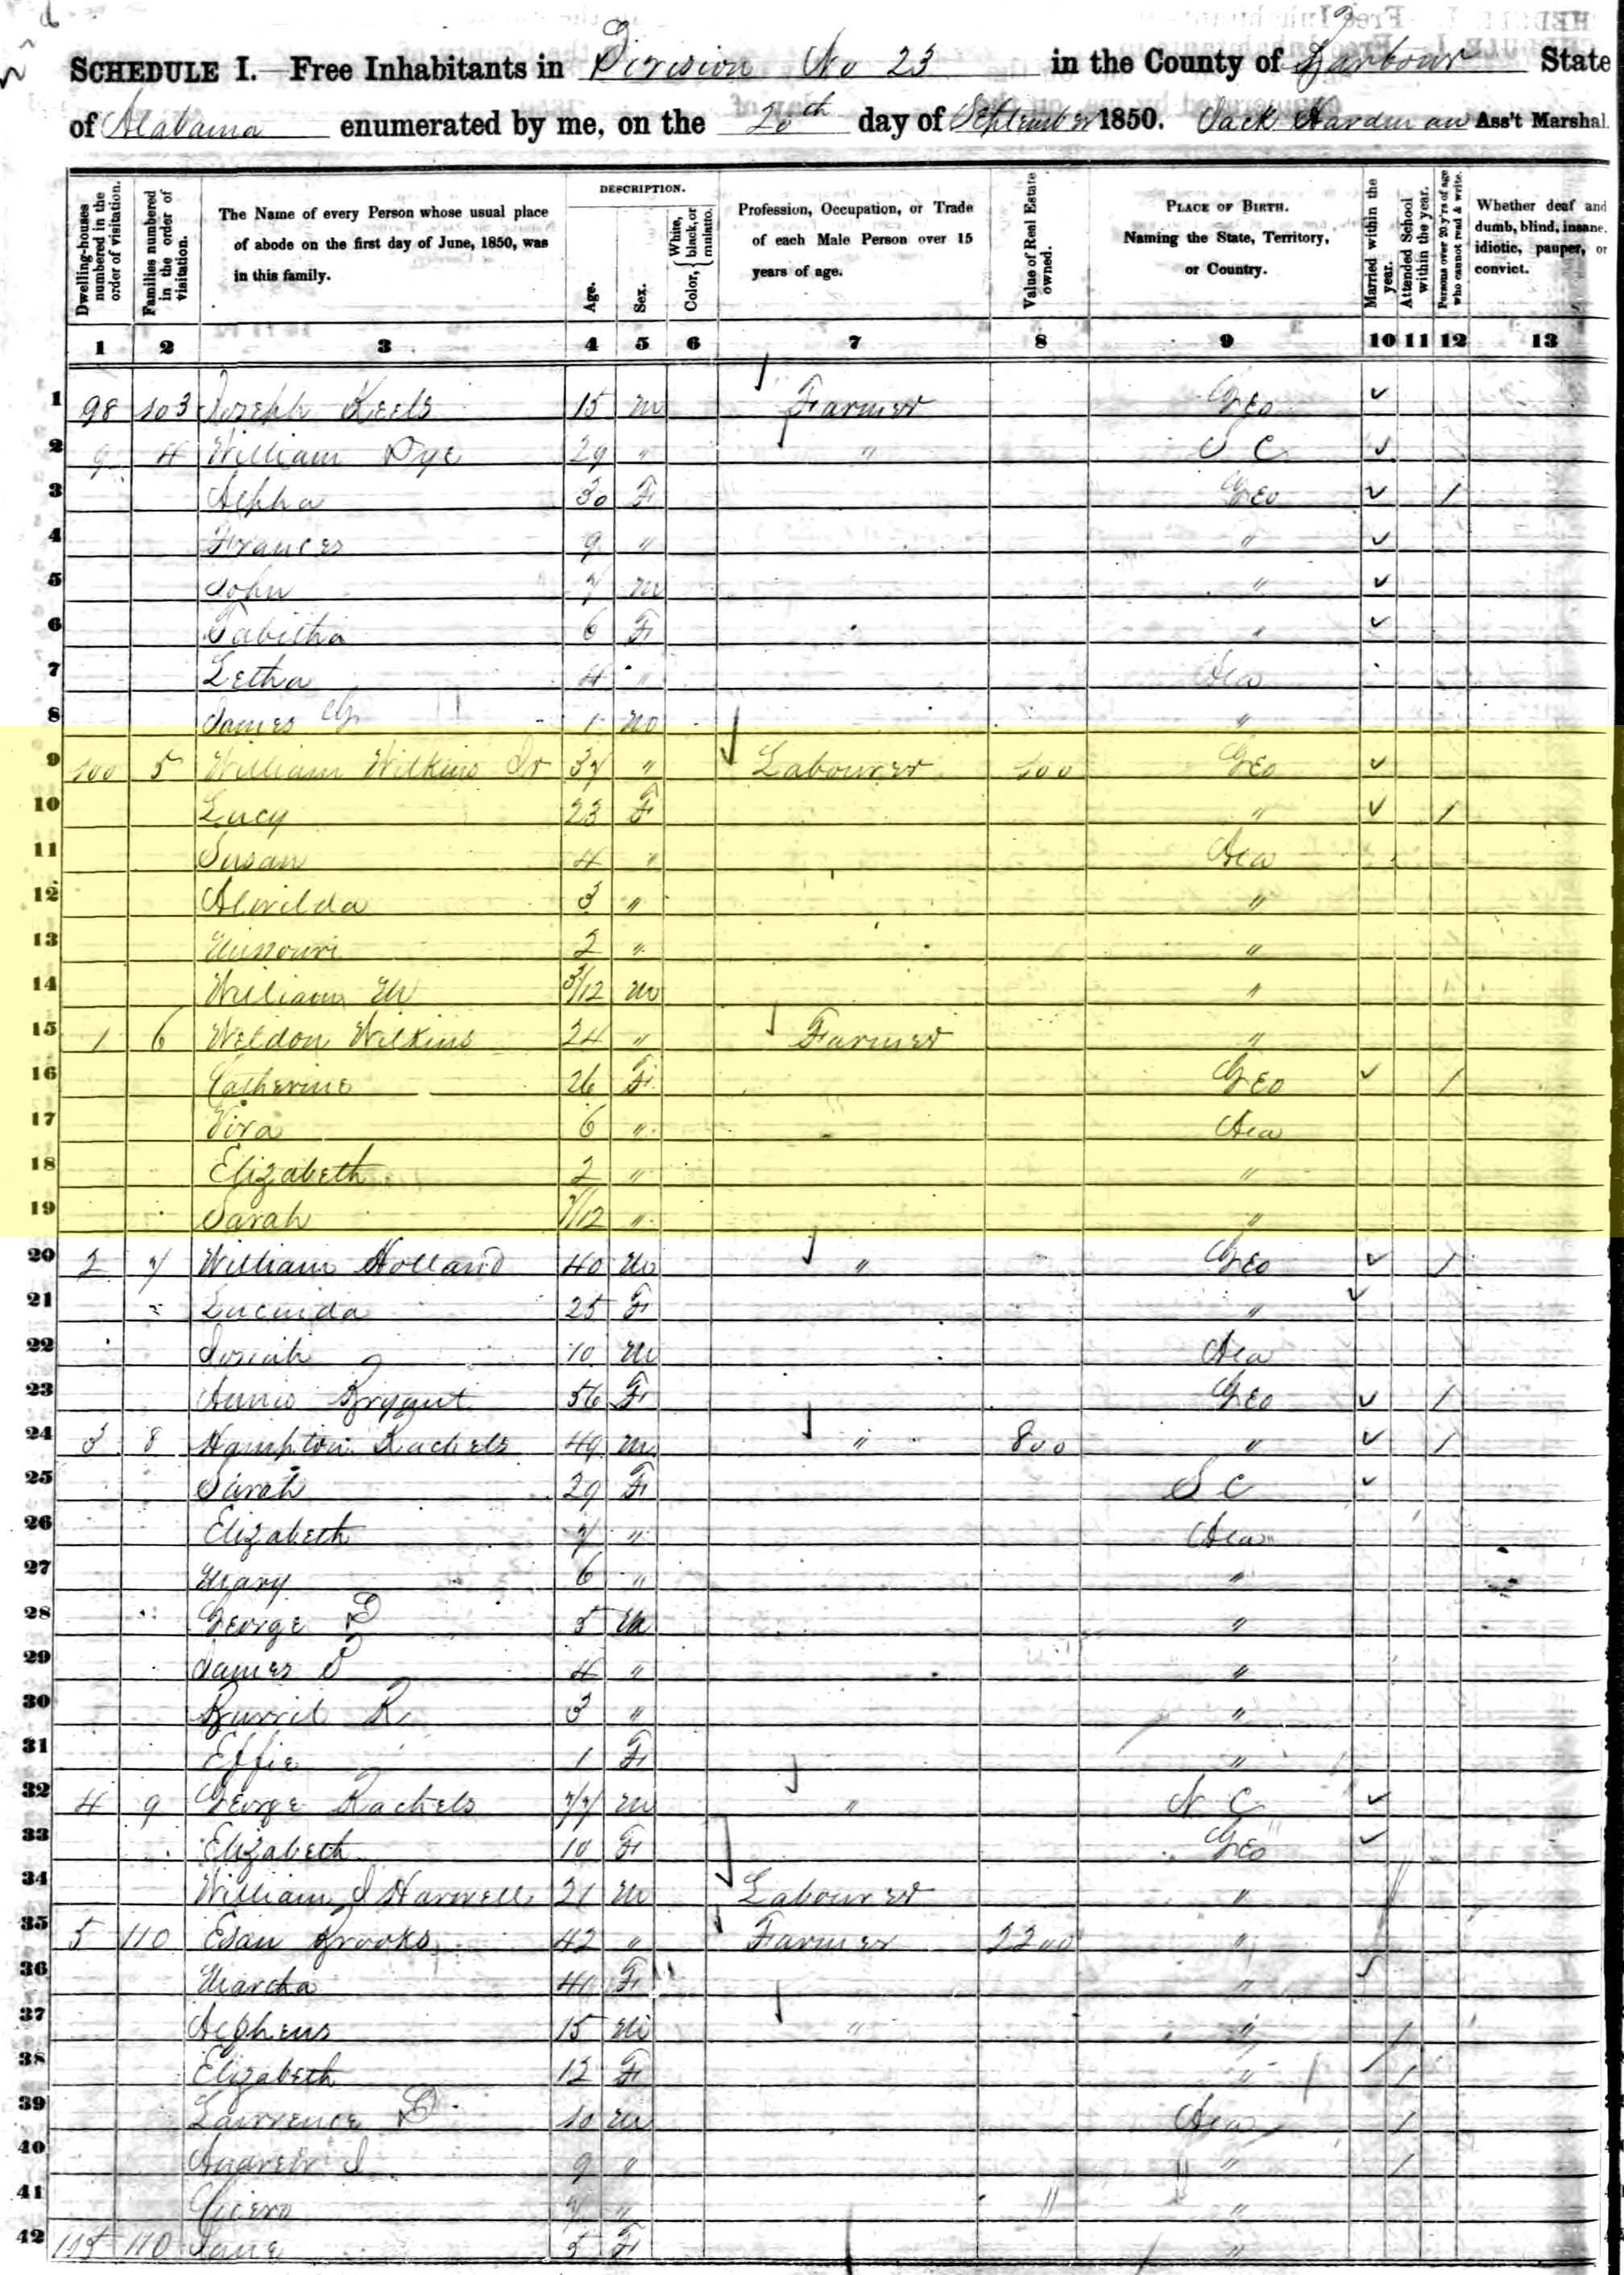 SCHEDULE I. Free Inhabitants in Division No 23 in the County of Barbour State
of Alabama enumerated by me, on the 20th day of September 1850. Jack Hardman Ass't Marshal.
Dwelling-houses numbered in the order of visitation.
Families numbered in the order of visitation.
The Name of every Person whose usual place of abode on the first day of June, 1850, was in this family.
DESCRIPTION.
Age.
Sex.
Color, { White, black, or mulatto.
Profession, Occupation, or Trade of each Male Person over 15 years of age.
Value of Real Estate owned.
PLACE OF BIRTH. Naming the State, Territory, or Country.
Married within the year.
Attended School within the year.
Persons over 20 y'rs of age who cannot read & write.
Whether deaf and dumb, blind, insane, idiotic, pauper, or convict.
1 2 3 4 5 6 7 8 9 10 11 12 13
1 98 103 Joseph Keels 15 m Farmer Geo ✓
2 9 4 William Dye 29 " " S C ✓
3 Alpha 30 F Geo ✓ /
4 Frances 9 " " ✓
5 John 7 m " ✓
6 Tabitha 6 F " ✓
7 Letha 4 " Ala
8 James G 1 m "
9 100 5 William Wilkins Sr 37 " Labourer 100 Geo ✓
10 Lucy 23 F " ✓ /
11 Susan 4 " Ala
12 Alvilda 3 " "
13 Missouri 2 " "
14 William M 3/12 m "
15 1 6 Weldon Wilkins 24 " Farmer "
16 Catherine 26 F Geo ✓ /
17 Vira 6 " Ala
18 Elizabeth 2 " "
19 Sarah 7/12 " "
20 2 7 William Holland 40 m " Geo ✓ /
21 Lucinda 25 F " ✓
22 Josiah 10 m Ala
23 Annis Bryant 56 F Geo ✓ /
24 3 8 Hampton Rachels 49 m " 800 " ✓ /
25 Sarah 29 F S C ✓
26 Elizabeth 7 " Ala
27 Mary 6 " "
28 George D 5 m "
29 James S 4 " "
30 Burril R 3 " "
31 Effie 1 F "
32 4 9 George Rachels 77 m " N C ✓
33 Elizabeth 10 F Geo ✓
34 William J Harwell 21 m Labourer "
35 5 110 Esau Brooks 42 " Farmer 2200 "
36 Martha 41 F " ✓
37 Alpheus 15 m " " /
38 Elizabeth 13 F " /
39 Lawrence D 10 m Ala /
40 Andrew J 9 " " /
41 Cicero 7 " "
42 105 110 Jane 5 F "